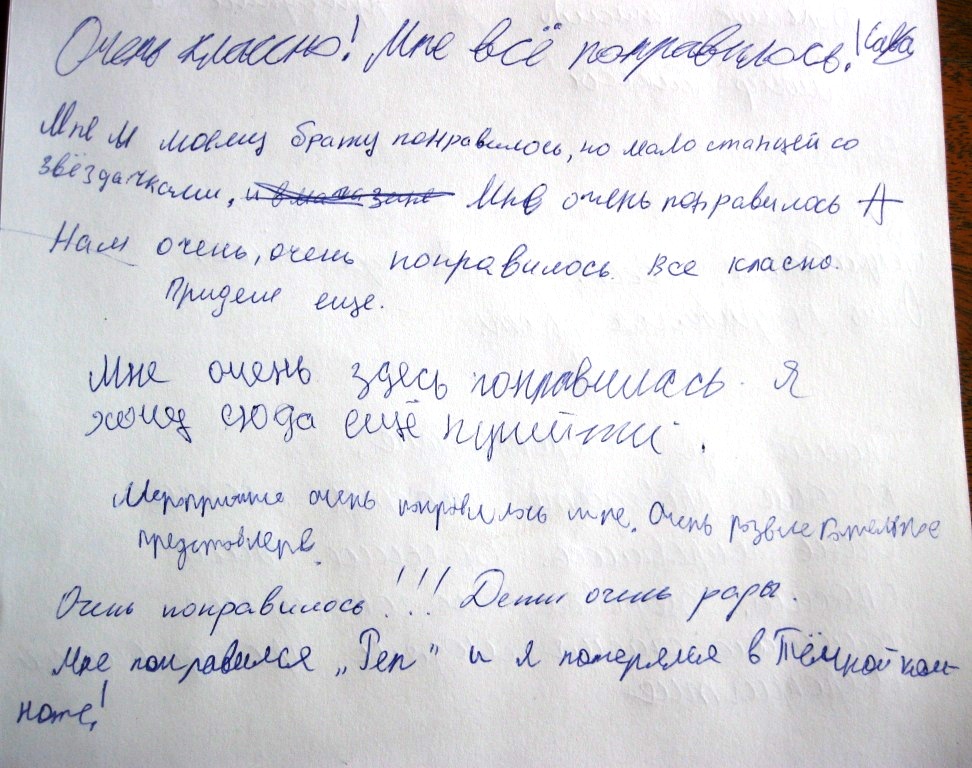 Очень классно! Мне всё понравилось!
Мне и моему брату понравилось, но мало станцей со
звёздачками, Мне очень понравилось
Нам очень, очень понравилось. Все класно.
Придем еще.
Мне очень здесь понравилась. Я
хочу сюда ещё прийти.
Мероприятие очень понравилось мне. Очень развлекательное
Очень понравилось!!! Дети очень рады.
Мне понравился „Реп" и я потерялся в Тёмной ком-
нате!